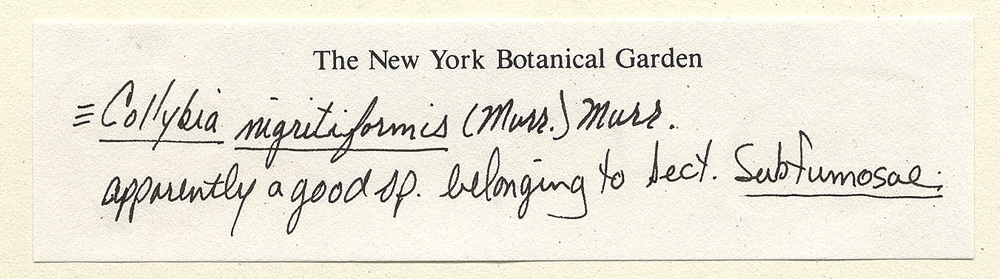 The New York Botanical Garden
≡ Collybia nigritiformis (Murr.) Murr.
apparently a good sp. belonging to sect. Subfumosae.